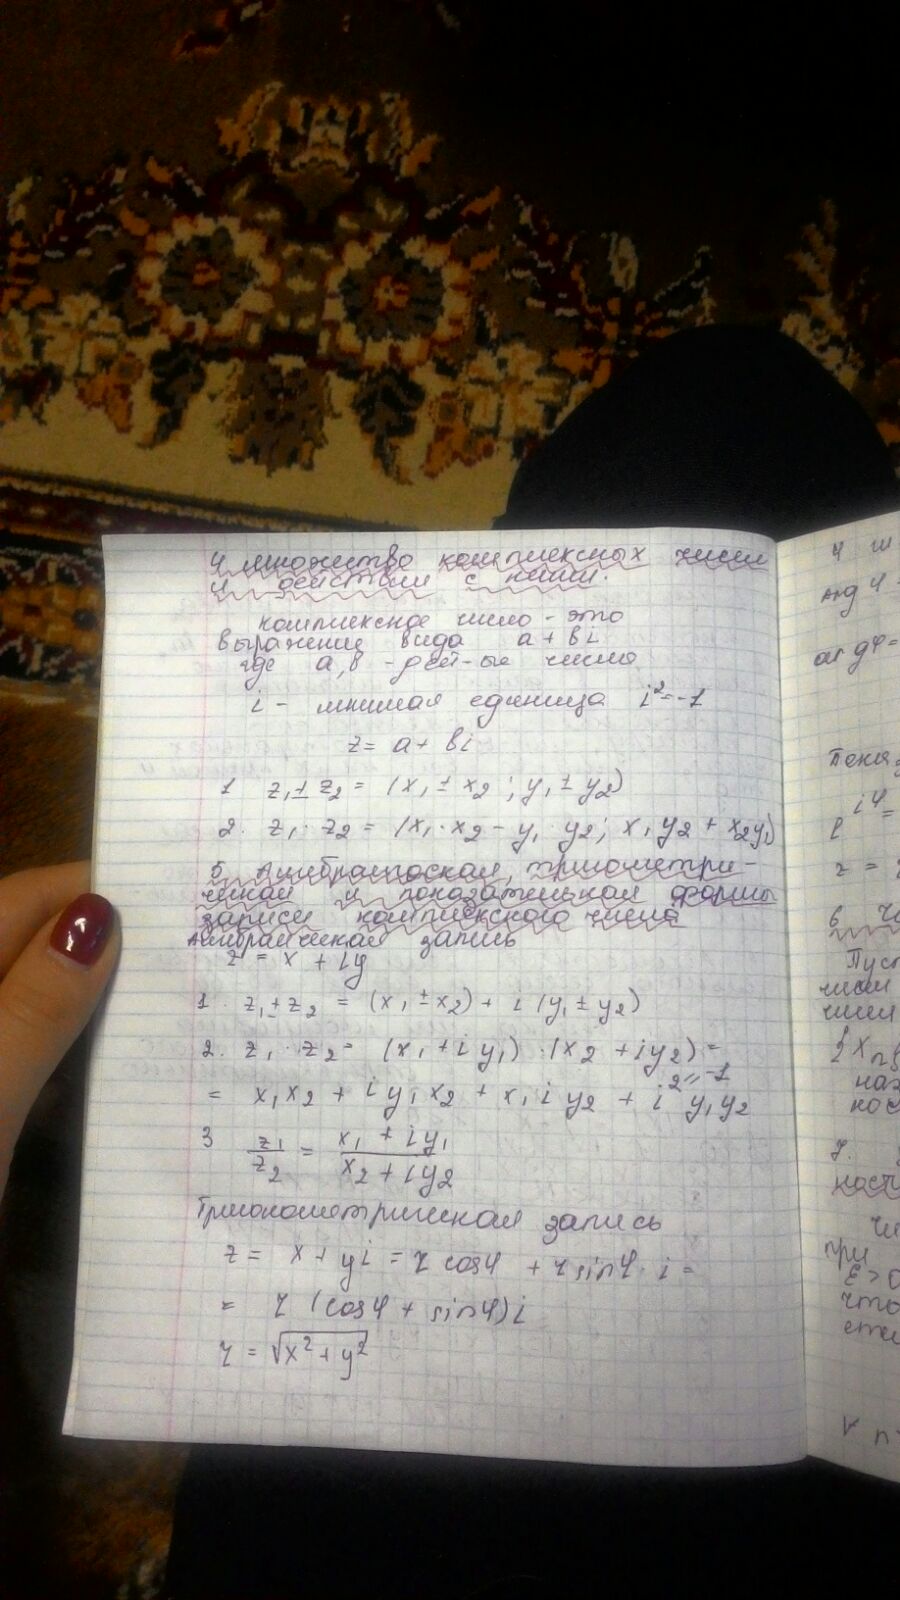 4 множество комплексных чисел
и действии с ними.
комплексное число - это
выражение вида a + bi
где a, b - дей-ые число
i - мнимая единица i² = -1
z = a + bi
1 z₁ ± z₂ = (x₁ ± x₂ ; y₁ ± y₂)
2. z₁ · z₂ = (x₁ · x₂ - y₁ · y₂; x₁y₂ + x₂y₁)
5. Алгебраическая, тригометри-
ческая и показательная формы
записи комплексного числа
Алгебраическая запись
z = x + iy
1. z₁ ± z₂ = (x₁ ± x₂) + i (y₁ ± y₂)
2. z₁ · z₂ = (x₁ + iy₁) · (x₂ + iy₂) =
= x₁x₂ + iy₁x₂ + x₁iy₂ + i² y₁y₂
= -1
3 z₁/z₂ = x₁ + iy₁ / x₂ + iy₂
Тригонометрическая запись
z = x + yi = r cosφ + r sinφ · i =
= r (cosφ + sinφ) i
r = √x² + y²
4
arg φ =
Пока
e iφ =
z =
6. Ч
Пуст
числ
числ
{x n
наз
нос
7.
ност
чи
при
ε > 0
что
n